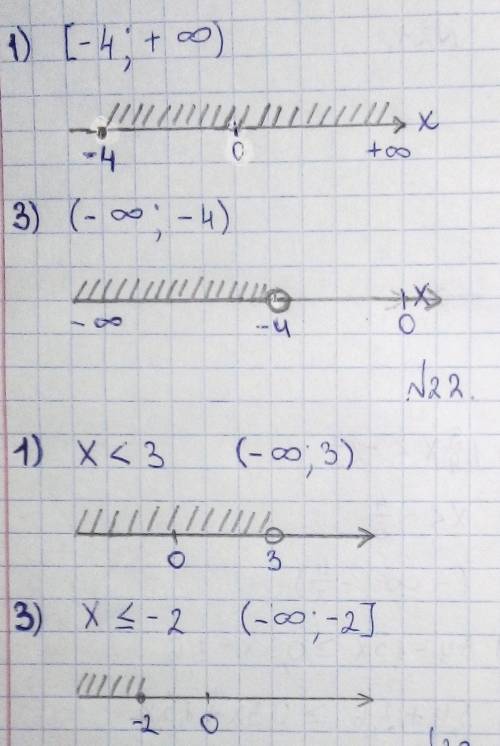 1) [-4; +∞)
x
-4 0 +∞
3) (-∞; -4)
x
-∞ -4 0
№22.
1) x < 3 (-∞; 3)
0 3
3) x ≤ -2 (-∞; -2]
-2 0